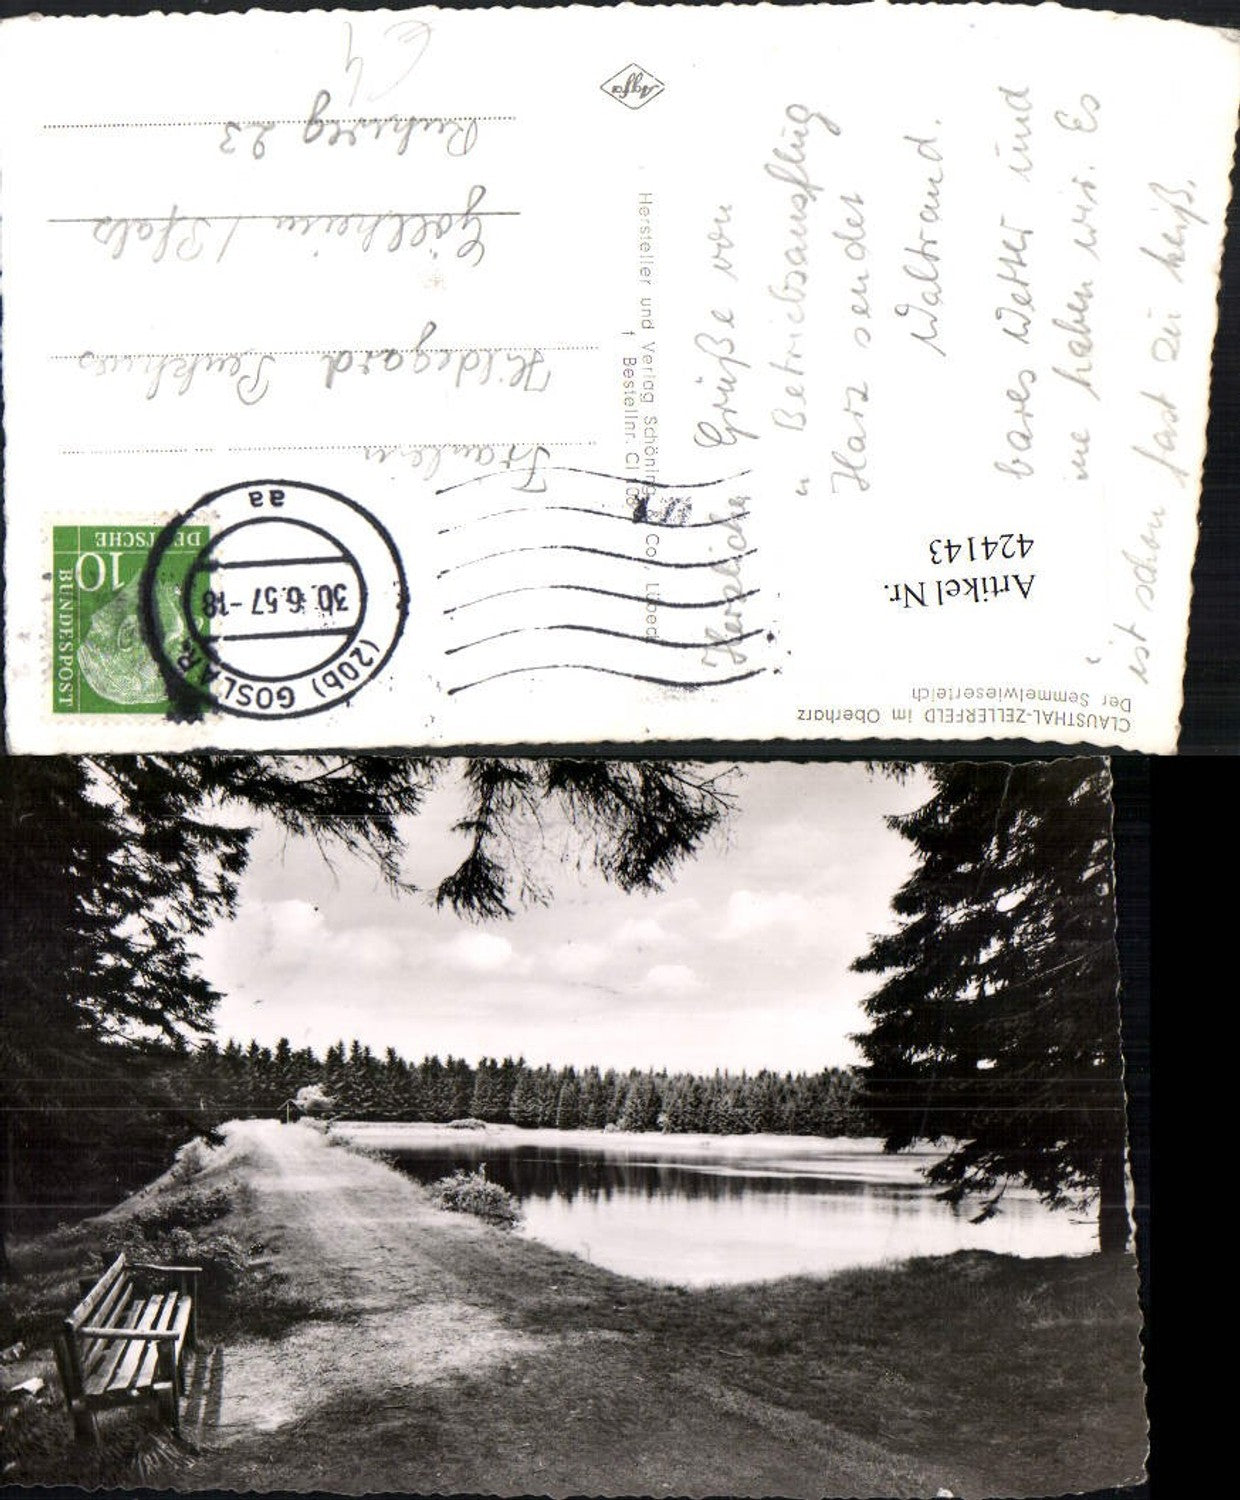 CLAUSTHAL-ZELLERFELD im Oberharz
Der Semmelwieserteich
Artikel Nr.
424143
Herzliche Grüße von
Betriebsausflug
Harz sendet
Waltraud.
bares Wetter und
haben wir. Es
ist schon fast zu heiß.
Hersteller und Verlag Schöning & Co., Lübeck
Bestellnr. Cl
Agfa
DEUTSCHE
BUNDESPOST
10
(20b) GOSLAR
30.6.57-18
aa
Fräulein
Hildegard
Göllheim / Pfalz
Ruhweg 23